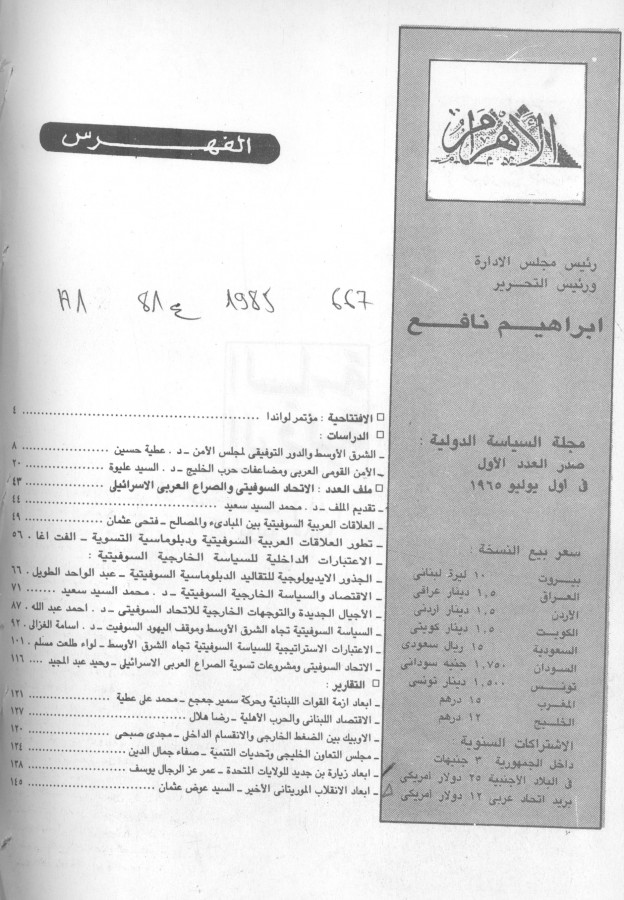 الأهرام
رئيس مجلس الادارة
ورئيس التحرير
ابراهيم نافع
مجلة السياسة الدولية :
صدر العدد الأول
فى أول يوليو ١٩٦٥
سعر بيع النسخة :
بيروت ١٠ ليرة لبنانى
العراق ١,٥ دينار عراقى
الأردن ١,٥ دينار أردنى
الكويت ١,٥ دينار كويتى
السعودية ١٥ ريال سعودى
السودان ١,٧٥٠ جنيه سودانى
تونس ١,٥٠٠ دينار تونسى
المغرب ١٥ درهم
الخليج ١٢ درهم
الاشتراكات السنوية
داخل الجمهورية ٣ جنيهات
فى البلاد الأجنبية ٢٥ دولار أمريكى
بريد اتحاد عربى ١٢ دولار أمريكى
الفهرس
1985
□ الافتتاحية : مؤتمر لواندا ٤
□ الدراسات :
ـ الشرق الأوسط والدور التوفيقى لمجلس الأمن ـ د . عطية حسين ٨
ـ الأمن القومى العربى ومضاعفات حرب الخليج ـ د . السيد عليوة ٢٠
□ ملف العدد : الاتحاد السوفيتى والصراع العربى الاسرائيلى ٤٣
ـ تقديم الملف ـ د . محمد السيد سعيد ٤٤
ـ العلاقات العربية السوفيتية بين المبادىء والمصالح ـ فتحى عثمان ٤٩
ـ تطور العلاقات العربية السوفيتية ودبلوماسية التسوية ـ الفت اغا . ٥٦
ـ الاعتبارات الداخلية للسياسة الخارجية السوفيتية :
ـ الجذور الايديولوجية للتقاليد الدبلوماسية السوفيتية ـ عبد الواحد الطويل . ٦٦
ـ الاقتصاد والسياسة الخارجية السوفيتية ـ د . محمد السيد سعيد ٧١
ـ الأجيال الجديدة والتوجهات الخارجية للاتحاد السوفيتى ـ د . احمد عبد الله . ٨٧
ـ السياسة السوفيتية تجاه الشرق الأوسط وموقف اليهود السوفيت ـ د . اسامة الغزالى . ٩٢
ـ الاعتبارات الاستراتيجية للسياسة السوفيتية تجاه الشرق الأوسط ـ لواء طلعت مسلم . ١٠١
ـ الاتحاد السوفيتى ومشروعات تسوية الصراع العربى الاسرائيلى ـ وحيد عبد المجيد ١١٦
□ التقارير :
ـ ابعاد ازمة القوات اللبنانية وحركة سمير جعجع ـ محمد على عطية ١٢١
ـ الاقتصاد اللبنانى والحرب الأهلية ـ رضا هلال ١٢٧
ـ الاوبيك بين الضغط الخارجى والانقسام الداخلى ـ مجدى صبحى
ـ مجلس التعاون الخليجى وتحديات التنمية ـ صفاء جمال الدين ١٣٤
ـ ابعاد زيارة بن جديد للولايات المتحدة ـ عمر عز الرجال يوسف ١٣٨
ـ ابعاد الانقلاب الموريتانى الأخير ـ السيد عوض عثمان ١٤٥